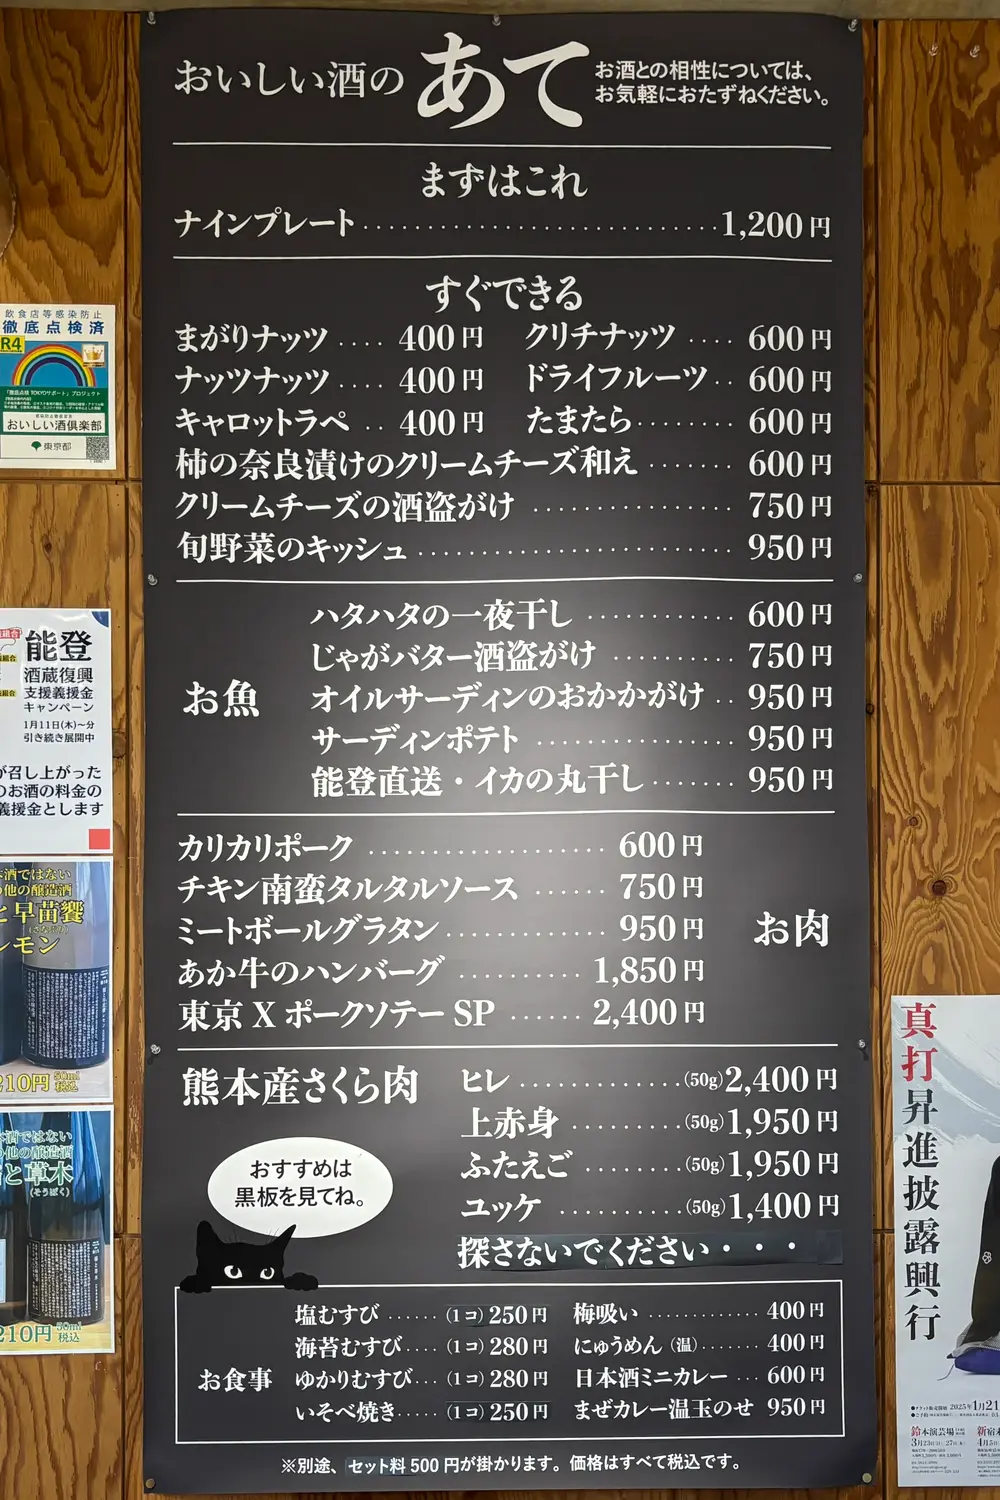 おいしい酒の あて お酒との相性については、
お気軽におたずねください。
まずはこれ
ナインプレート 1,200円
すぐできる
まがりナッツ 400円 クリチナッツ 600円
ナッツナッツ 400円 ドライフルーツ 600円
キャロットラペ 400円 たまたら 600円
柿の奈良漬けのクリームチーズ和え 600円
クリームチーズの酒盗がけ 750円
旬野菜のキッシュ 950円
お魚
ハタハタの一夜干し 600円
じゃがバター酒盗がけ 750円
オイルサーディンのおかかがけ 950円
サーディンポテト 950円
能登直送・イカの丸干し 950円
お肉
カリカリポーク 600円
チキン南蛮タルタルソース 750円
ミートボールグラタン 950円
あか牛のハンバーグ 1,850円
東京Xポークソテー SP 2,400円
熊本産さくら肉
ヒレ (50g)2,400円
上赤身 (50g)1,950円
ふたえご (50g)1,950円
ユッケ (50g)1,400円
探さないでください・・・
おすすめは
黒板を見てね。
お食事
塩むすび (1コ)250円 梅吸い 400円
海苔むすび (1コ)280円 にゅうめん(温) 400円
ゆかりむすび (1コ)280円 日本酒ミニカレー 600円
いそべ焼き (1コ)250円 まぜカレー温玉のせ 950円
※別途、セット料500円が掛かります。価格はすべて税込です。
飲食店等感染防止
徹底点検済
R4
「徹底点検 TOKYOサポート」プロジェクト
おいしい酒倶楽部
東京都
能登
酒蔵復興
支援義援金
キャンペーン
1月11日(木)〜分
引き続き展開中
が召し上がった
のお酒の料金の
義援金とします
酒ではない
他の醸造酒
と早苗饗
(さなぶり)
レモン
210円 50ml 税込
酒ではない
の他の醸造酒
と草木
(そうぼく)
210円 50ml 税込
真打昇進披露興行
2025年1月21
鈴本演芸場
3月23日
新宿末
4月5日